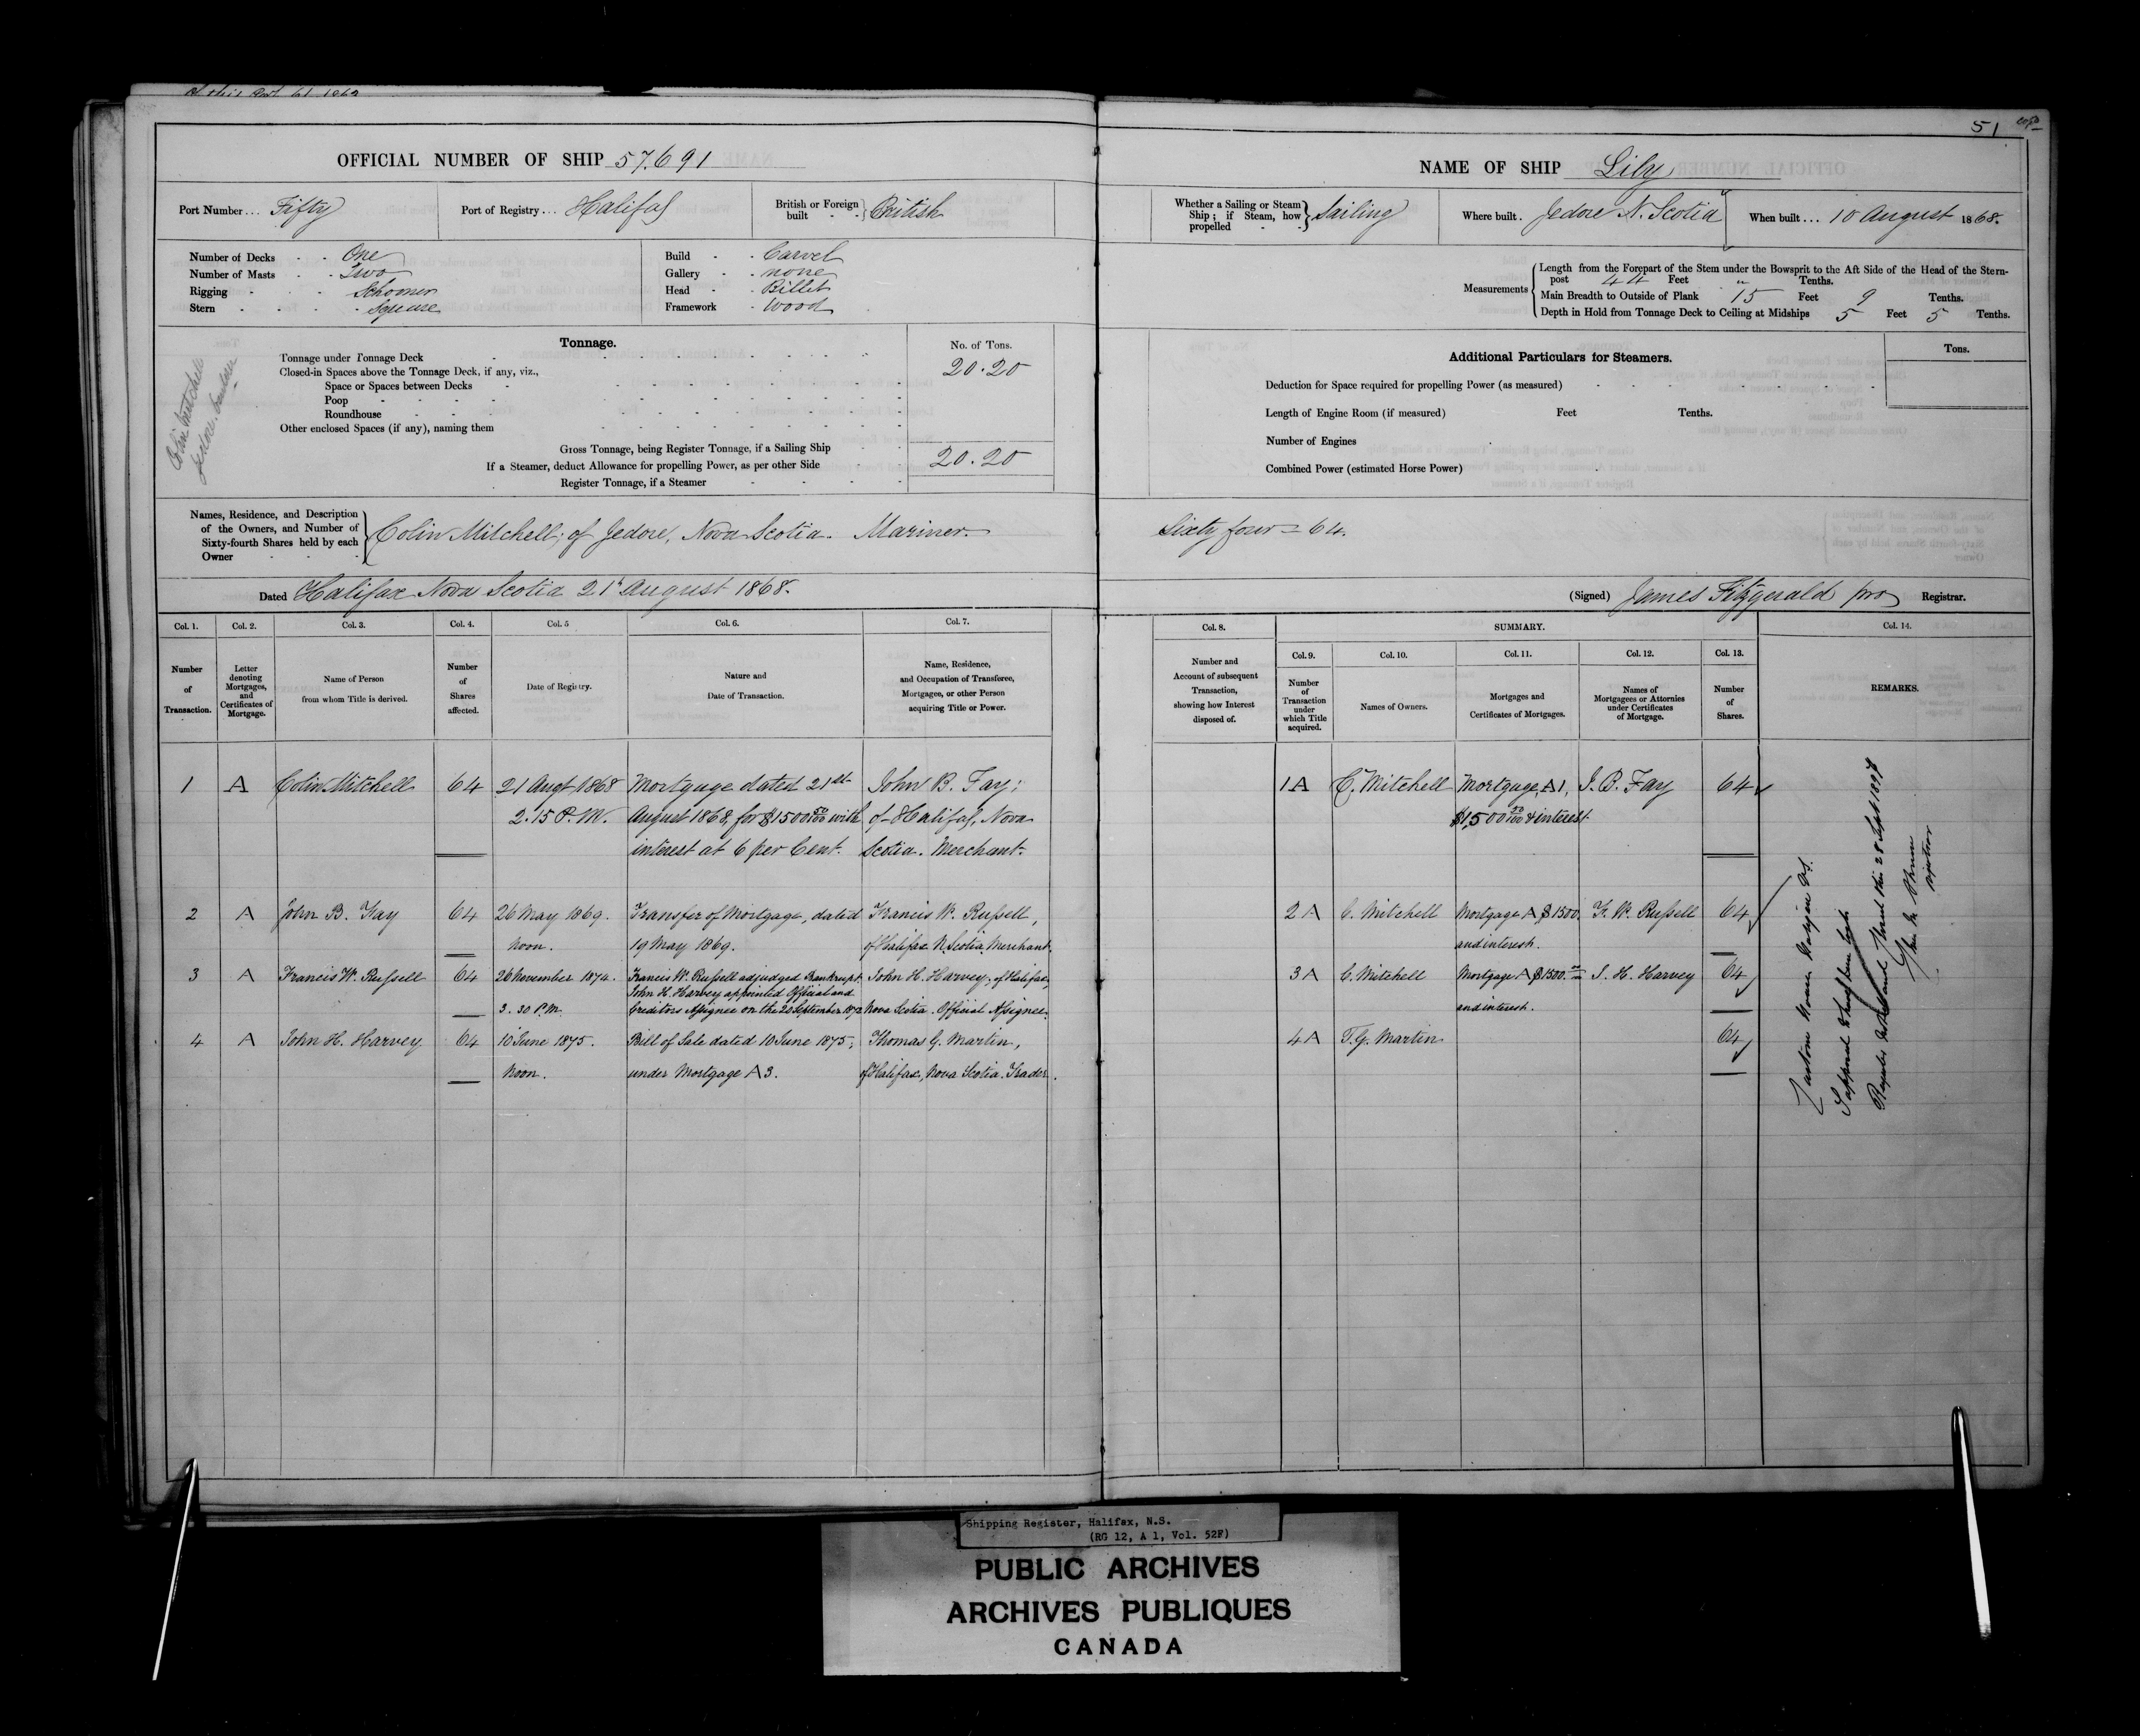 51
OFFICIAL NUMBER OF SHIP 57.691
Port Number... Fifty
Port of Registry... Halifax
British or Foreign built } British
Number of Decks - - One
Number of Masts - - Two
Rigging - - - Schooner
Stern - - - - Square
Build - - Carvel
Gallery - - none
Head - - Billet
Framework - Wood
Tonnage.
No. of Tons.
Tonnage under Tonnage Deck 20.20
Closed-in Spaces above the Tonnage Deck, if any, viz.,
Space or Spaces between Decks
Poop
Roundhouse
Other enclosed Spaces (if any), naming them
Gross Tonnage, being Register Tonnage, if a Sailing Ship 20.20
If a Steamer, deduct Allowance for propelling Power, as per other Side
Register Tonnage, if a Steamer
Colin Mitchell
Jedore
Names, Residence, and Description
of the Owners, and Number of
Sixty-fourth Shares held by each
Owner
Colin Mitchell; of Jedore, Nova Scotia. Mariner.
Dated Halifax Nova Scotia 21st August 1868.
NAME OF SHIP Lily
Whether a Sailing or Steam
Ship; if Steam, how
propelled } Sailing
Where built. Jedore N. Scotia
When built... 10 August 1868.
Measurements
Length from the Forepart of the Stem under the Bowsprit to the Aft Side of the Head of the Stern-
post 44 Feet " Tenths.
Main Breadth to Outside of Plank 15 Feet 9 Tenths.
Depth in Hold from Tonnage Deck to Ceiling at Midships 5 Feet 5 Tenths.
Additional Particulars for Steamers.
Tons.
Deduction for Space required for propelling Power (as measured)
Length of Engine Room (if measured) Feet Tenths.
Number of Engines
Combined Power (estimated Horse Power)
Sixty four = 64.
(Signed) James Fitzgerald pro Registrar.
Col. 1. Col. 2. Col. 3. Col. 4. Col. 5 Col. 6. Col. 7.
Number of Transaction.
Letter denoting Mortgages, and Certificates of Mortgage.
Name of Person from whom Title is derived.
Number of Shares affected.
Date of Registry.
Nature and Date of Transaction.
Name, Residence, and Occupation of Transferee, Mortgagee, or other Person acquiring Title or Power.
1 A Colin Mitchell 64 21 Augt 1868 Mortgage dated 21st John B. Fay;
2.15 P.M. August 1868, for $1500 00/100 with of Halifax, Nova
interest at 6 per Cent. Scotia. Merchant.
2 A John B. Fay 64 26 May 1869. Transfer of Mortgage, dated Francis W. Russell,
noon. 19 May 1869. of Halifax N. Scotia, Merchant.
3 A Francis W. Russell 64 26 November 1874. Francis W. Russell adjudged Bankrupt. John H. Harvey; of Halifax,
John H. Harvey appointed Official and
3.30 P.M. Creditors Assignee on the 20 September 1872 Nova Scotia. Official Assignee.
4 A John H. Harvey 64 10 June 1875. Bill of Sale dated 10 June 1875; Thomas G. Martin,
noon. under Mortgage A 3. of Halifax, Nova Scotia. Trader.
Col. 8.
SUMMARY.
Col. 14.
Col. 9. Col. 10. Col. 11. Col. 12. Col. 13.
Number and Account of subsequent Transaction, showing how Interest disposed of.
Number of Transaction under which Title acquired.
Names of Owners.
Mortgages and Certificates of Mortgages.
Names of Mortgagees or Attornies under Certificates of Mortgage.
Number of Shares.
REMARKS.
1 A C. Mitchell Mortgage, A 1, J. B. Fay 64
$1,500 00/100 & interest.
2 A C. Mitchell Mortgage A $1500. F. W. Russell 64
and interest.
3 A C. Mitchell Mortgage A $1500.00 J. H. Harvey 64
and interest.
4 A T. G. Martin 64
Supposed to have been lost
Register closed this 28 Sept 1897
Shipping Register, Halifax, N.S.
(RG 12, A 1, Vol. 52F)
PUBLIC ARCHIVES
ARCHIVES PUBLIQUES
CANADA